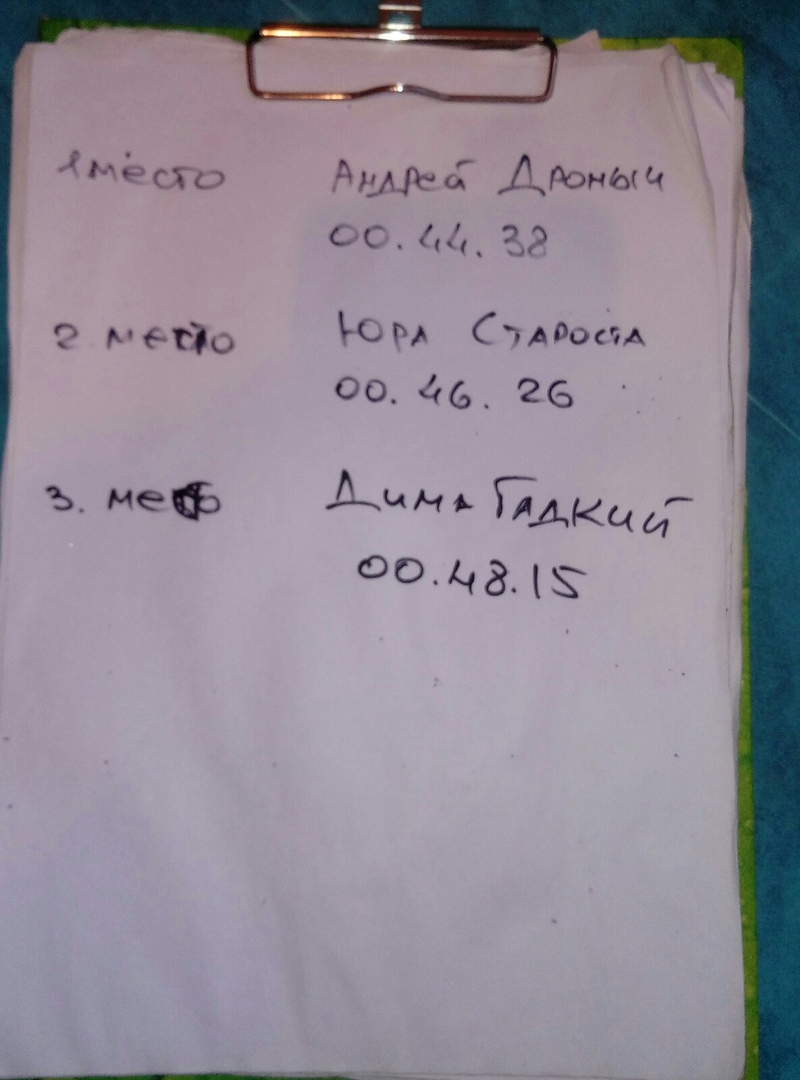 1 место Андрей Дромыч
00.44.38
2 место Юра Староста
00.46.26
3. место Дима Гадкий
00.48.15